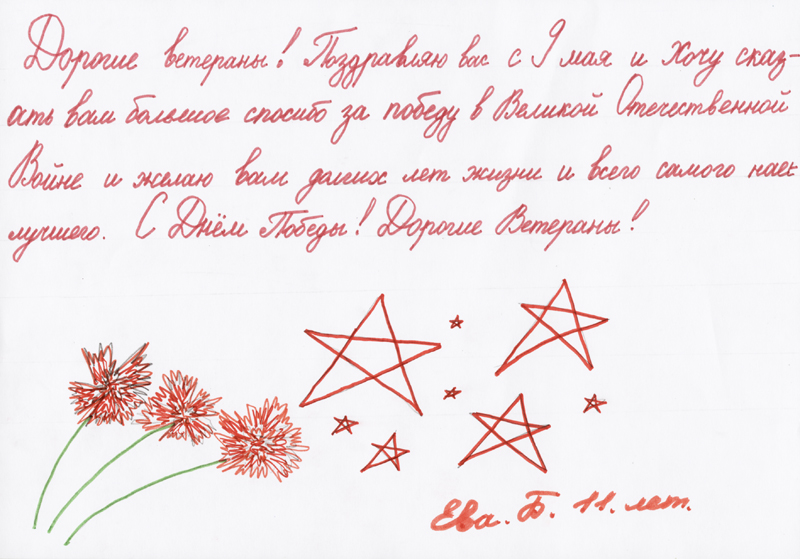 Дорогие ветераны! Поздравляю вас с 9 мая и Хочу сказ-
ать вам большое спосибо за победу в Великой Отечественной
Войне и желаю вам долгих лет жизни и всего самого наи-
лучшего. С Днём Победы! Дорогие Ветераны!
Ева. Б. 11. лет.